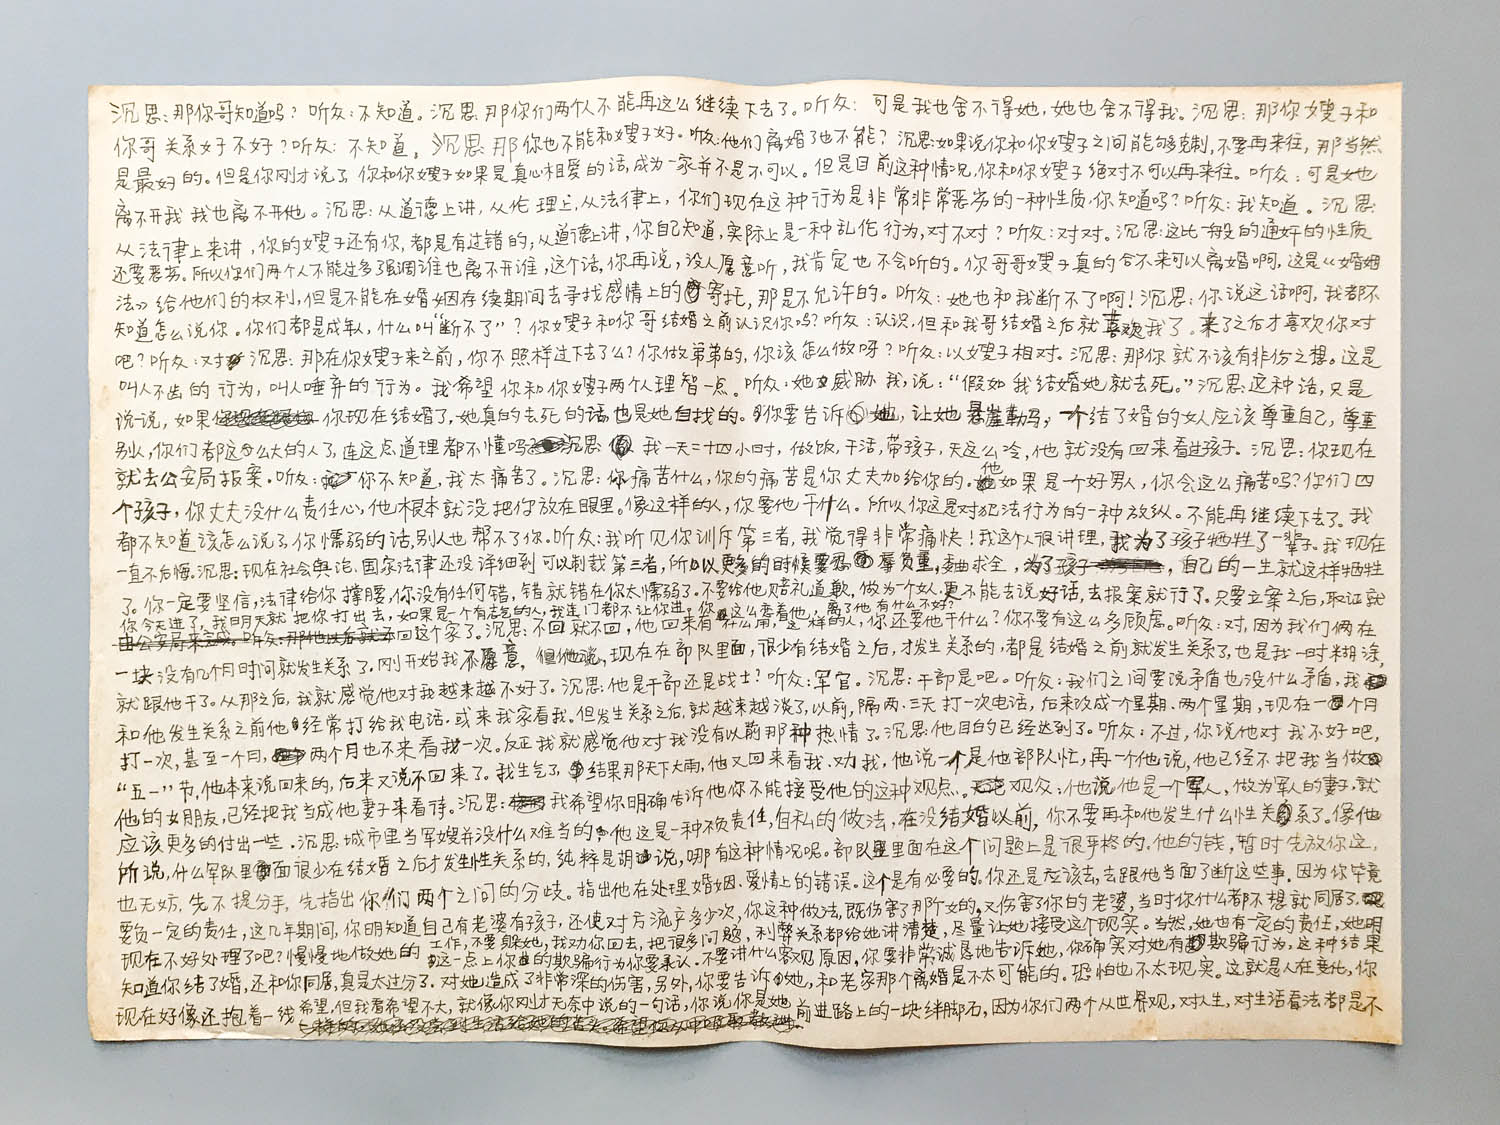 沉思：那你哥知道吗？听众：不知道。沉思：那你们两个人不能再这么继续下去了。听众：可是我也舍不得她，她也舍不得我。沉思：那你嫂子和
你哥关系好不好？听众：不知道。沉思：那你也不能和嫂子好。听众：他们离婚了也不能？沉思：如果说你和你嫂子之间能够克制，不要再来往，那当然
是最好的。但是你刚才说了，你和你嫂子如果是真心相爱的话，成为一家并不是不可以。但是目前这种情况，你和你嫂子绝对不可以再来往。听众：可是她也
离不开我我也离不开他。沉思：从道德上讲，从伦理上，从法律上，你们现在这种行为是非常非常恶劣的一种性质，你知道吗？听众：我知道。沉思：
从法律上来讲，你的嫂子还有你，都是有过错的，从道德上讲，你自己知道，实际上是一种乱伦行为，对不对？听众：对对。沉思：这比一般的通奸的性质
还要恶劣。所以你们两个人不能过多强调谁也离不开谁，这个话，你再说，没人愿意听，我肯定也不会听的。你哥哥嫂子真的合不来可以离婚啊，这是《婚姻
法》给他们的权利，但是不能在婚姻存续期间去寻找感情上的寄托，那是不允许的。听众：她也和我断不了啊！沉思：你说这话啊，我都不
知道怎么说你。你们都是成年人，什么叫“断不了”？你嫂子和你哥结婚之前认识你吗？听众：认识，但和我哥结婚之后就喜欢我了。来了之后才喜欢你对
吧？听众：对。沉思：那在你嫂子来之前，你不照样过下去了么？你做弟弟的，你该怎么做呀？听众：以嫂子相对。沉思：那你就不该有非份之想。这是
叫人不齿的行为，叫人唾弃的行为。我希望你和你嫂子两个人理智一点。听众：她威胁我，说：“假如我结婚她就去死。”沉思：这种话，只是
说说，如果你现在结婚了，她真的去死的话，也是她自找的。你要告诉她，让她悬崖勒马，一个结了婚的女人应该尊重自己，尊重
别人，你们都这么大的人了，连这点道理都不懂吗？沉思 我一天二十四小时，做饭，干活，带孩子，天这么冷，他就没有回来看过孩子。沉思：你现在
就去公安局报案。听众：你不知道，我太痛苦了。沉思：你痛苦什么，你的痛苦是你丈夫加给你的。他如果是一个好男人，你会这么痛苦吗？你们四
个孩子，你丈夫没什么责任心，他根本就没把你放在眼里。像这样的人，你要他干什么。所以你这是对犯法行为的一种放纵。不能再继续下去了。我
都不知道该怎么说了，你懦弱的话，别人也帮不了你。听众：我听见你训斥第三者，我觉得非常痛快！我这个人很讲理，我为了孩子牺牲了一辈子。我现在
一直不后悔。沉思：现在社会舆论、国家法律还没详细到可以制裁第三者，所以更多的时候要忍辱负重，委曲求全，为了孩子，自己的一生就这样牺牲
了。你一定要坚信，法律给你撑腰，你没有任何错，错就错在你太懦弱了。不要给他赔礼道歉，做为一个女人更不能去说好话，去报案就行了。只要立案之后，取证就
你今天进了，我明天就把你打出去，如果是一个有志气的人，我连门都不让你进，你这么恋着他，离了他有什么不好？
由公安局来完成。听众：那他以后就不回这个家了。沉思：不回就不回，他回来有什么用，这样的人，你还要他干什么？你不要有这么多顾虑。听众：对，因为我们俩在
一块没有几个月时间就发生关系了。刚开始我不愿意，但他说，现在在部队里面，很少有结婚之后，才发生关系的，都是结婚之前就发生关系了，也是我一时糊涂，
就跟他干了。从那之后，我就感觉他对我越来越不好了。沉思：他是干部还是战士？听众：军官。沉思：干部是吧。听众：我们之间要说矛盾也没什么矛盾，我
和他发生关系之前他经常打给我电话，或来我家看我。但发生关系之后，就越来越淡了，以前，隔两、三天打一次电话，后来改成一个星期、两个星期，现在一个月
打一次，甚至一个月，两个月也不来看我一次。反正我就感觉他对我没有以前那种热情了。沉思：他目的已经达到了。听众：不过，你说他对我不好吧，
“五一”节，他本来说回来的，后来又说不回来了。我生气了，结果那天下大雨，他又回来看我、劝我，他说一个是他部队忙，再一个他说，他已经不把我当做
他的女朋友，已经把我当成他妻子来看待。沉思：我希望你明确告诉他你不能接受他的这种观点。观众：他说他是一个军人，做为军人的妻子，就
应该更多的付出一些。沉思：城市里当军嫂并没什么难当的，他这是一种不负责任，自私的做法，在没结婚以前，你不要再和他发生什么性关系了。像他
所说，什么军队里面很少在结婚之后才发生性关系的，纯粹是胡说，哪有这种情况呢。部队里面在这个问题上是很严格的。他的钱，暂时先放你这，
也无妨，先不提分手，先指出你们两个之间的分歧。指出他在处理婚姻、爱情上的错误。这个是有必要的，你还是应该去，去跟他当面了断这些事。因为你毕竟
要负一定的责任，这几年期间，你明知道自己有老婆有孩子，还使对方流产多少次，你这种做法，既伤害了那个女的，又伤害了你的老婆，当时你什么都不想就同居了。
现在不好处理了吧？慢慢地做她的工作，不要躲她，我劝你回去，把很多问题，利弊关系都给她讲清楚，尽量让她接受这个现实。当然，她也有一定的责任，她明
知道你结了婚，还和你同居，真是太过分了。这一点上你的欺骗行为你要承认。不要讲什么客观原因，你要非常诚恳地告诉她，你确实对她有欺骗行为，这种结果
对她造成了非常深的伤害，另外，你要告诉她，和老家那个离婚是不太可能的。恐怕也不太现实。这就是人在变化，你
现在好像还抱着一线希望，但我看希望不大，就像你刚才无奈中说的一句话，你说你是她前进路上的一块绊脚石，因为你们两个从世界观，对人生，对生活看法都是不